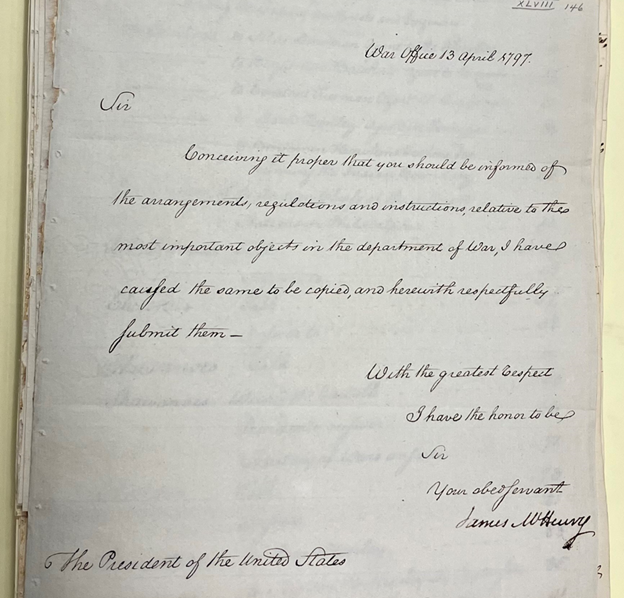 XLVIII 146
War Office 13 April 1797.
Sir
Conceiving it proper that you should be informed of
the arrangements, regulations and instructions, relative to the
most important objects in the department of War, I have
caused the same to be copied, and herewith respectfully
submit them —
With the greatest Respect
I have the honor to be
Sir
Your obed Servant
James McHenry
The President of the United States